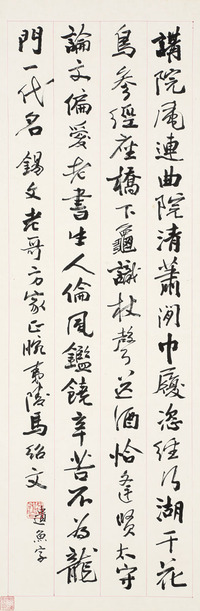 講院風連曲院清蕭閒巾屨恣經行湖干花
鳥參經座橋下龜議杖聲送酒恰逢賢太守
論文偏愛老書生人倫風鑑饒辛苦不為龍
門一代名 錫文老哥方家正腕 夷陵馬紹文
遺魚字